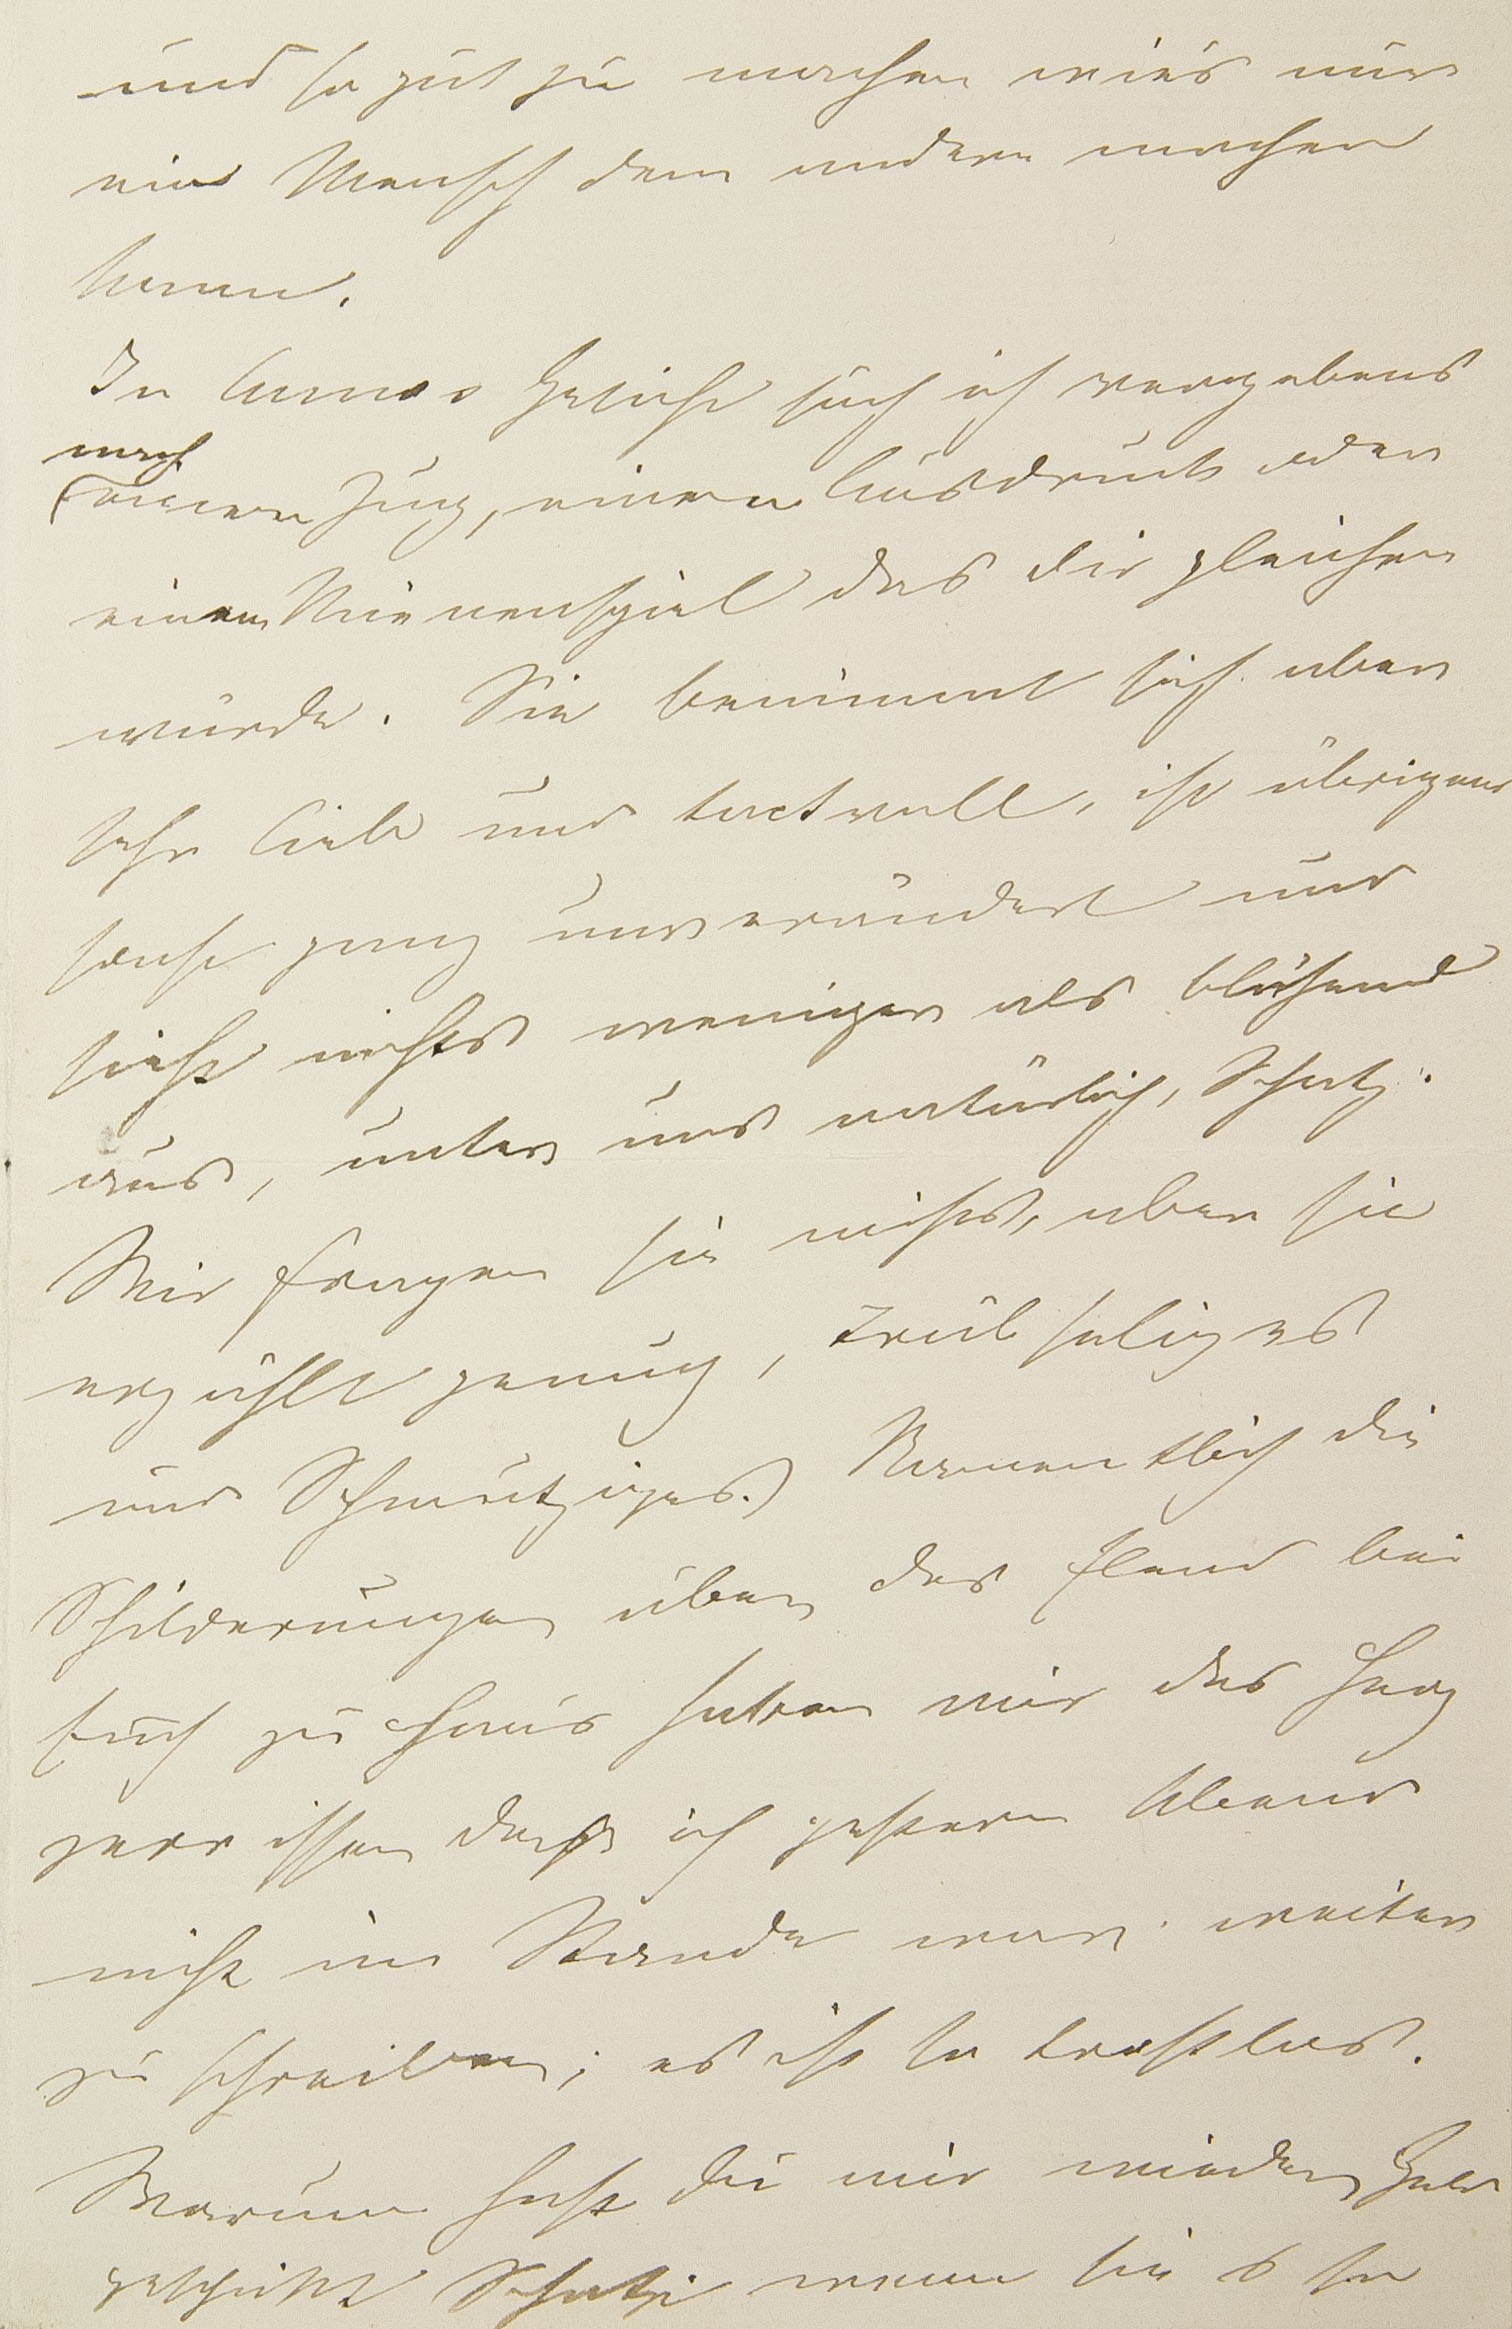 und so gut zu machen wie's nur
ein Mensch dem andern machen
kann.
In Annas Gesicht such ich vergebens
nach
einem Zug, einem Ausdruck oder
einem Mienenspiel das dir gleichen
würde. Sie benimmt sich aber
sehr lieb und tactvoll, ist übrigens
sonst ganz unverändert und
sieht nichts weniger als blühend
aus, unter uns natürlich, Schatz.
Wir fragen sie nichts, aber sie
erzählt genug, Trübseliges
und Schmutziges. Namentlich die
Schilderungen über das Elend bei
Euch zu Haus haben mir das Herz
zerrissen dass ich gestern Abend
nicht im Stande war weiter
zu schreiben; es ist so trostlos.
Warum hast du mir wieder Geld
geschickt Schatzi wenn sie's so